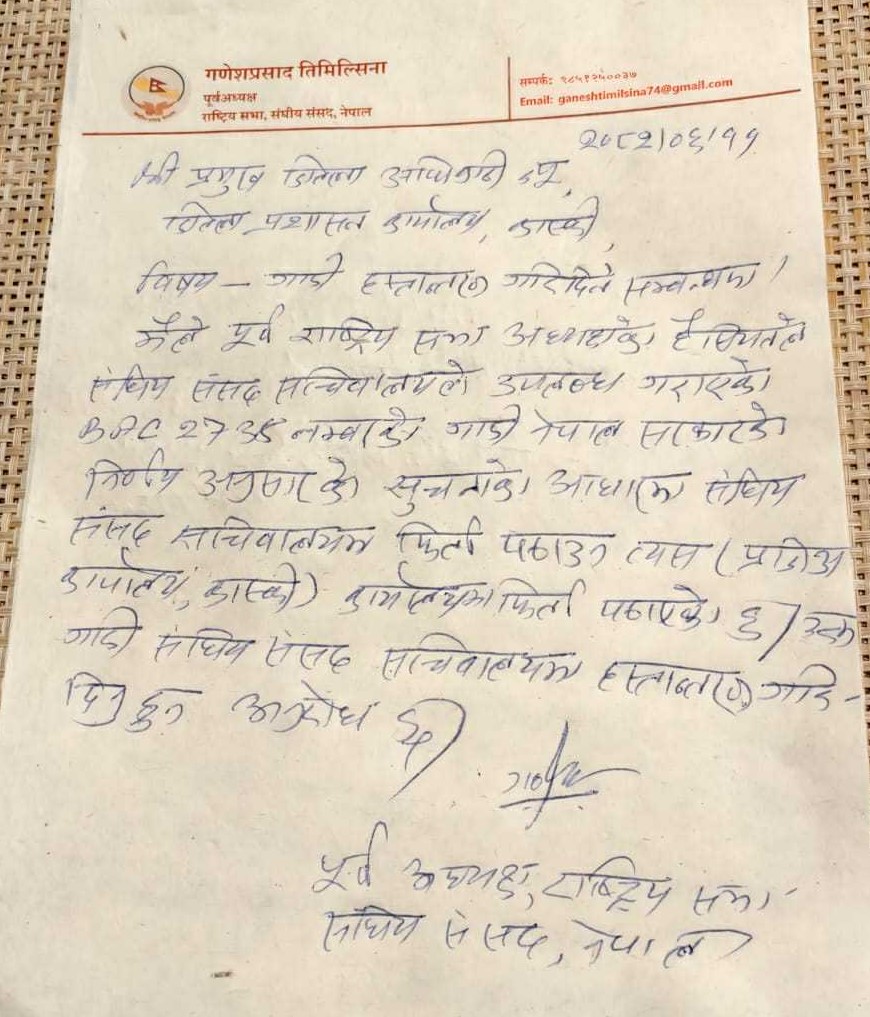 गणेशप्रसाद तिमिल्सिना
पूर्वअध्यक्ष
राष्ट्रिय सभा, संघीय संसद, नेपाल
सम्पर्कः ९८५१२५००३७
Email: ganeshtimilsina74@gmail.com
२०८२।०६।११
श्री प्रमुख जिल्ला अधिकारी ज्यू,
जिल्ला प्रशासन कार्यालय, कास्की,
विषय – गाडी हस्तान्तरण गरिदिने सम्बन्धमा।
मैले पूर्व राष्ट्रिय सभा अध्यक्षको हैसियतले
संघिय संसद सचिवालयले उपलब्ध गराएको
नम्बरको गाडी नेपाल सरकारको
निर्णय अनुसारको सुचनाको आधारमा संघिय
संसद सचिवालयमा फिर्ता पठाउन त्यस (प्रजिअ
कार्यालय, कास्की) कार्यालयमा फिर्ता पठाएको छु। उक्त
गाडी संघिय संसद सचिवालयमा हस्तान्तरण गरि-
दिनु हुन अनुरोध छ।
पूर्व अध्यक्ष, राष्ट्रिय सभा
संघिय संसद, नेपाल